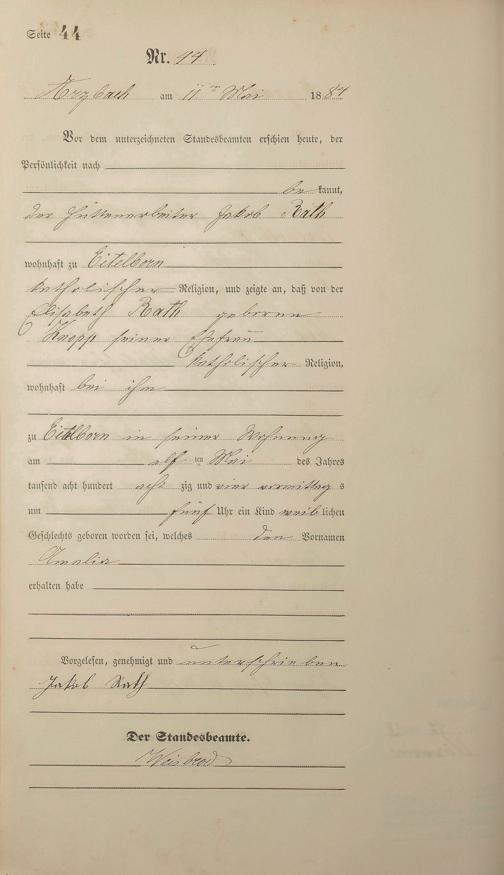 Seite 44
Nr. 44
Arzbach am 11ten Mai 1884
Vor dem unterzeichneten Standesbeamten erschien heute, der
Persönlichkeit nach
bekannt,
der Hüttenarbeiter Jakob Rath
wohnhaft zu Eitelborn
katholischer Religion, und zeigte an, daß von der
Elisabeth Rath geborene
Knopp seiner Ehefrau
katholischer Religion,
wohnhaft bei ihm
zu Eitelborn in seiner Wohnung
am elf ten Mai des Jahres
tausend acht hundert acht zig und vier vormittags
um fünf Uhr ein Kind weiblichen
Geschlechts geboren worden sei, welches den Vornamen
Amalia
erhalten habe
Vorgelesen, genehmigt und unterschrieben
Jakob Rath
Der Standesbeamte.
Weisbrod